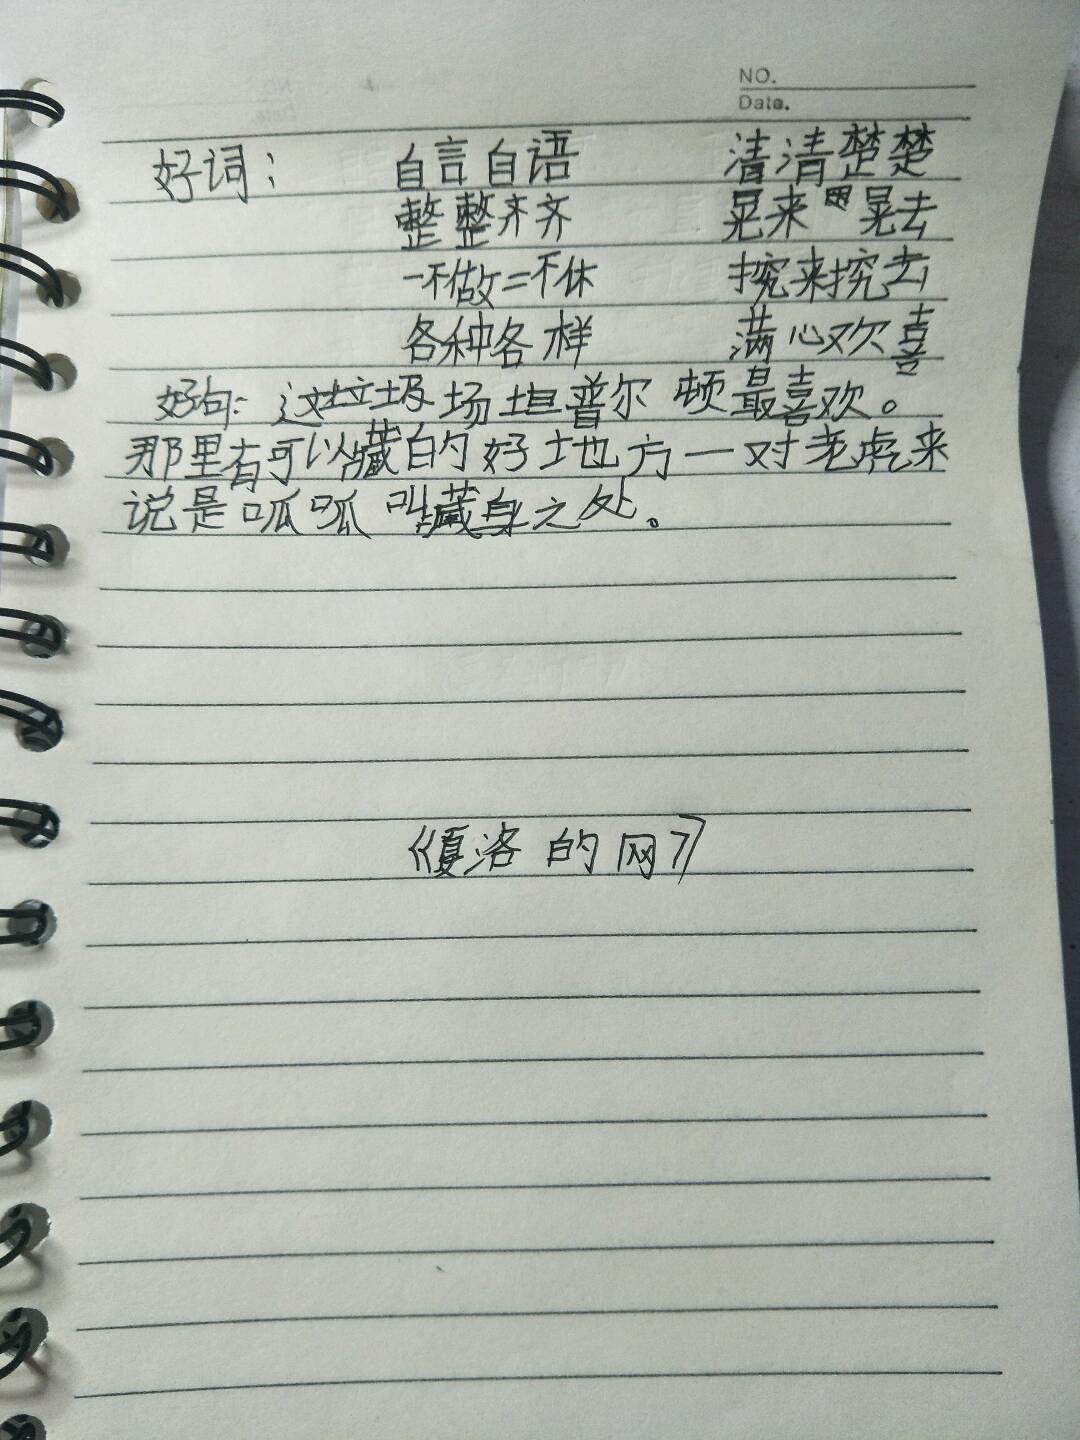 NO.
Date.
好词： 自言自语 清清楚楚
整整齐齐 晃来晃去
一不做二不休 挖来挖去
各种各样 满心欢喜
好句：这垃圾场坦普尔顿最喜欢。
那里有可以藏的好地方一对老虎来
说是呱呱叫藏身之处。
《夏洛的网》